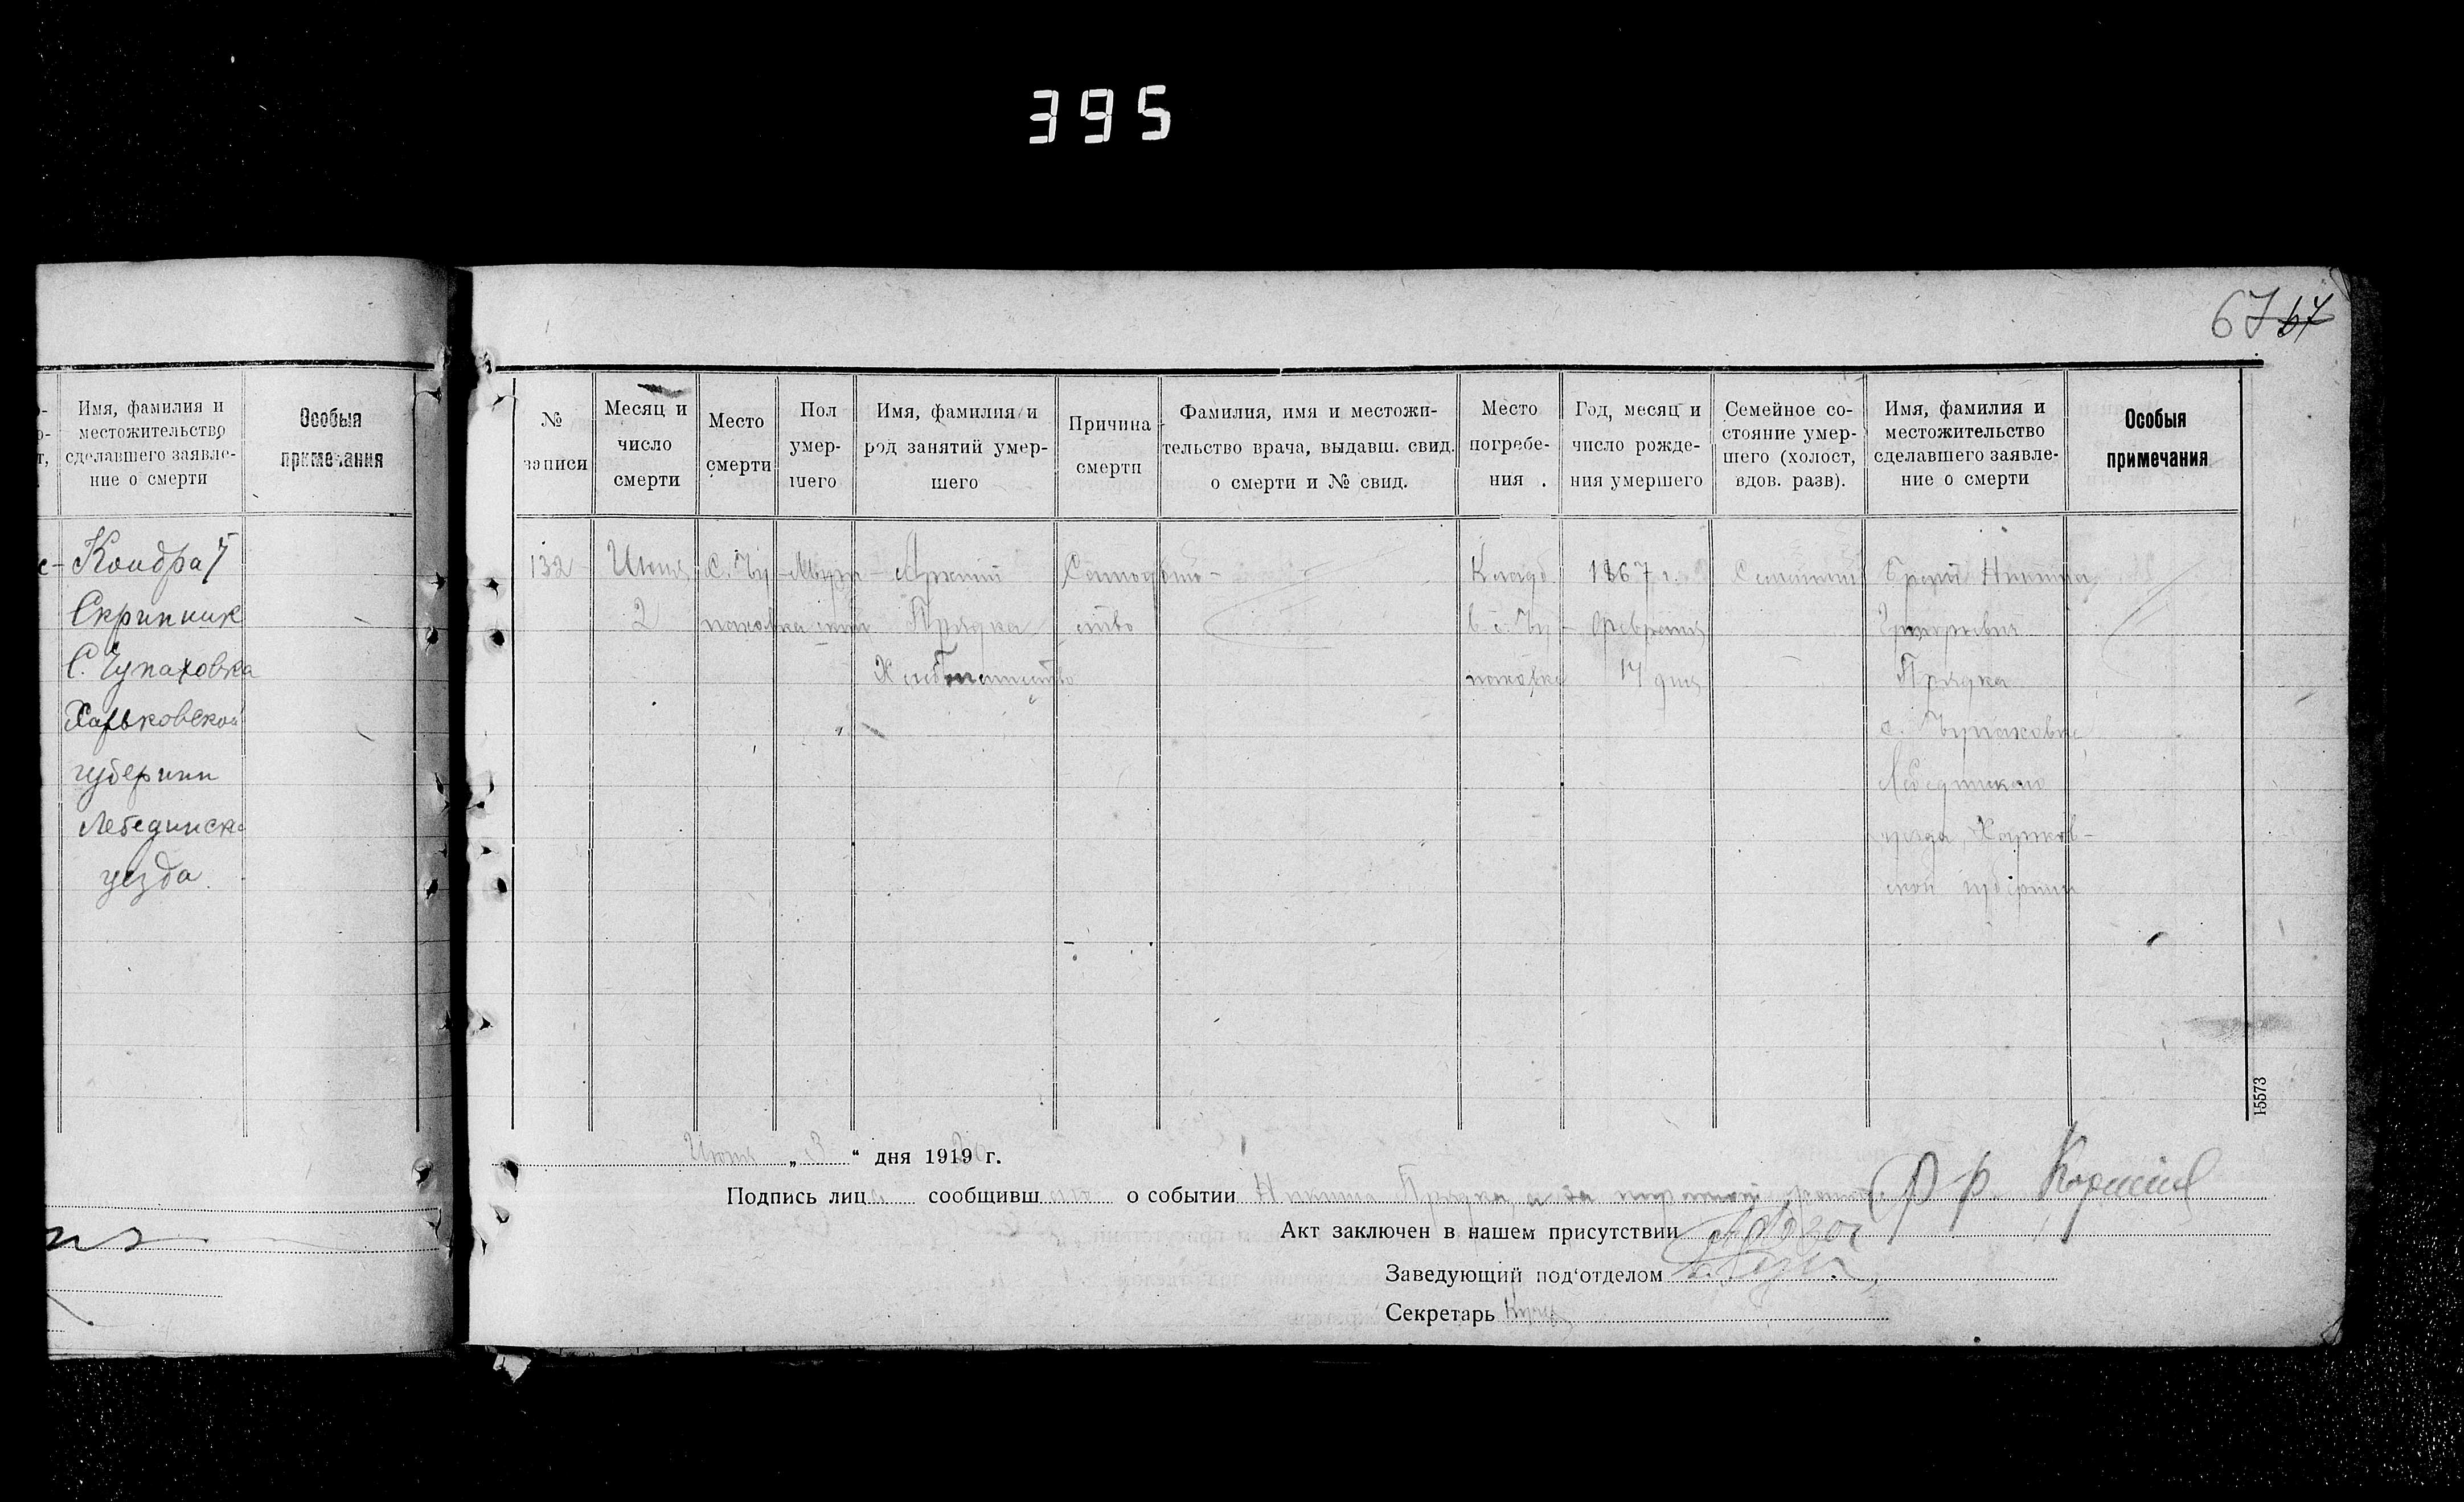 395
67 67
Имя, фамилия и
местожительство
сделавшего заявле-
ние о смерти
Особыя
примечания
Кондрат
Скрипник
С. Чупаховка
Харьковской
губернии
Лебединск
уезда
№
записи
Месяц и
число
смерти
Место
смерти
Пол
умер-
шего
Имя, фамилия и
род занятий умер-
шего
Причина
смерти
Фамилия, имя и местожи-
тельство врача, выдавш. свид.
о смерти и № свид.
Место
погребе-
ния
Год, месяц и
число рожде-
ния умершего
Семейное со-
стояние умер-
шего (холост,
вдов. разв).
Имя, фамилия и
местожительство
сделавшего заявле-
ние о смерти
Особыя
примечания
132
Июня
2
С. Чу-
паховка
Муж-
ской
Прядка
Кладб.
в с. Чу-
паховке
1867 г.
Февраля
17 дня
Брат Никита
Григорьевич
Прядка
с. Чупаховка
Лебединского
уезда, Харьков-
ской губернии
15573
Июня „ 3 “ дня 1919 г.
Подпись лица сообщивш о событии Никита Прядка а за
Акт заключен в нашем присутствии
Заведующий под‘отделом
Секретарь